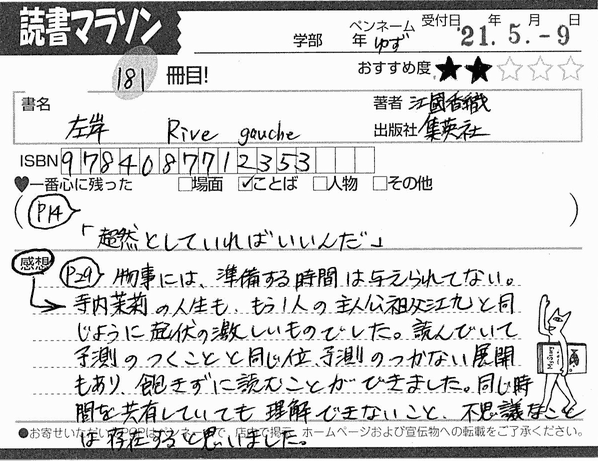 読書マラソン
学部 年 ペンネーム ゆず 受付日 年 月 日 '21.5.-9
181 冊目! おすすめ度 ★★☆☆☆
書名 著者 江國香織
左岸 Rive gauche 出版社 集英社
ISBN 9784087712353
♥一番心に残った □場面 ☑ことば □人物 □その他
(P14 )
「超然としていればいいんだ」
感想 P29 物事には、準備する時間は与えられてない。
寺内茉莉の人生も、もう1人の主人公祖父江九と同
じように起伏の激しいものでした。読んでいて
予測のつくことと同じ位、予測のつかない展開
もあり、飽きずに読むことができました。同じ時
間を共有していても理解できないこと、不思議なこと
は存在すると思いました。